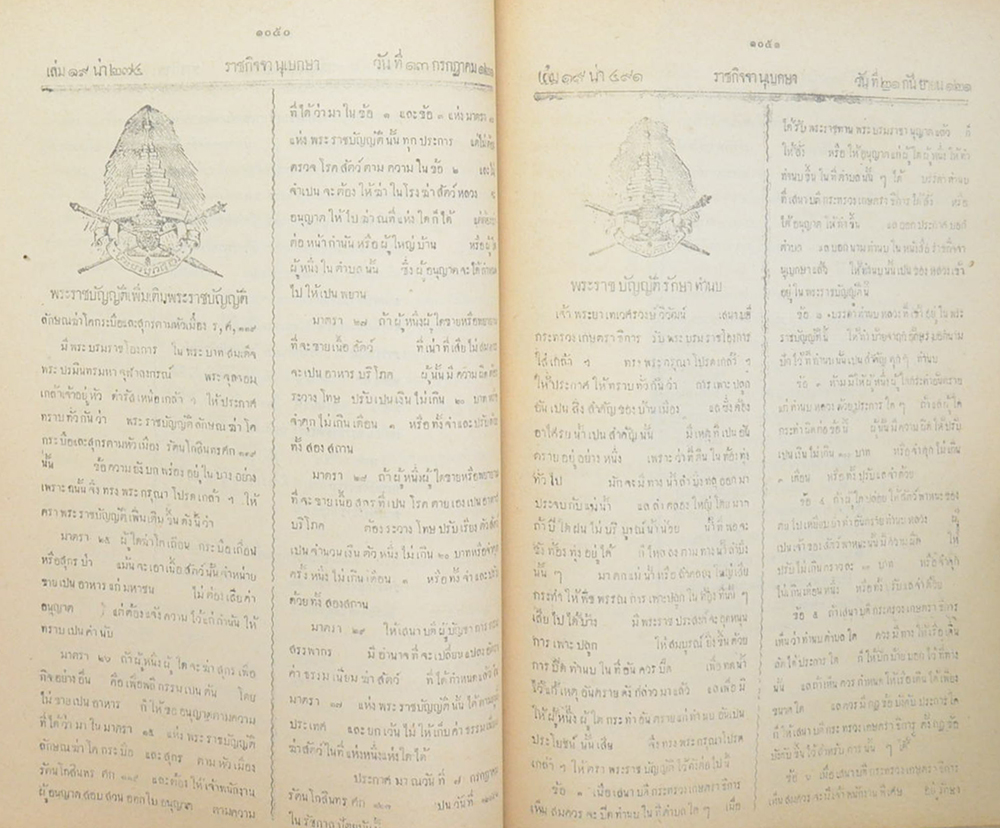 ๑๐๕๐
เล่ม ๑๙ น่า ๒๗๔ ราชกิจจานุเบกษา วันที่ ๑๓ กรกฎาคม ๑๒๑
พระราชบัญญัติเพิ่มเติมพระราชบัญญัติ
ลักษณฆ่าโคกระบือและสุกรตามหัวเมือง ร,ศ,๑๑๙
มีพระบรมราชโองการ ในพระบาทสมเด็จ
พระปรมินทรมหาจุฬาลงกรณ์ พระจุลจอม
เกล้าเจ้าอยู่หัว ดำรัสเหนือเกล้า ฯ ให้ประกาศ
ทราบทั่วกันว่า พระราชบัญญัติลักษณฆ่าโค
กระบือและสุกรตามหัวเมือง รัตนโกสินทรศก ๑๑๙
นั้น ข้อความยังบกพร่องอยู่ในบางอย่าง
เพราะฉนั้นจึงทรงพระกรุณาโปรดเกล้า ฯ ให้
ตราพระราชบัญญัติเพิ่มเติมขึ้นดังนี้ว่า
มาตรา ๒๕ ผู้ใดฆ่าโคเถื่อน กระบือเถื่อน
หรือสุกรป่า แม้นจะเอาเนื้อสัตว์นั้นจำหน่าย
ขายเปนอาหารแก่มหาชน ไม่ต้องเสียค่า
อนุญาต แต่ต้องแจ้งความไว้แก่กำนันให้
ทราบเปนคำนับ
มาตรา ๒๖ ถ้าผู้หนึ่งผู้ใดจะฆ่าสุกรเพื่อ
กิจอย่างอื่น คือเพื่อพลีกรรมเปนต้น โดย
ไม่ขายเปนอาหาร ก็ให้ขออนุญาตตามความ
ที่ได้ว่ามาในมาตรา ๑๕ แห่งพระราชบัญญัติ
ลักษณฆ่าโคกระบือ และสุกร ตามหัวเมือง
รัตนโกสินทรศก ๑๑๙ และต้องให้เจ้าพนักงาน
ผู้อนุญาตสอบสวนออกใบอนุญาต ตามความ
ที่ได้ว่ามาในข้อ ๑ และข้อ ๓ แห่งมาตรา
แห่งพระราชบัญญัตินั้นทุกประการ แต่ไม่ต้อง
ตรวจโรคสัตว์ตามความในข้อ ๒ และไม่
จำเปนจะต้องให้ฆ่าในโรงฆ่าสัตว์หลวง
อนุญาตให้ไปฆ่าณที่แห่งใดก็ได้ แต่ต้อง
ต่อหน้ากำนันหรือผู้ใหญ่บ้าน หรือผู้ใด
ผู้หนึ่งในตำบลนั้น ซึ่งผู้อนุญาตจะได้กำหนด
ไปให้เปนพยาน
มาตรา ๒๗ ถ้าผู้หนึ่งผู้ใดขายหรือพยายาม
ที่จะขายเนื้อสัตว์ ที่เน่าที่เสียไม่สมควร
จะเปนอาหารบริโภค ผู้นั้นมีความผิดต้อง
ระวางโทษ ปรับเปนเงินไม่เกิน ๒๐ บาท หรือ
จำคุกไม่เกินเดือน ๑ หรือทั้งจำและปรับด้วย
ทั้งสองสถาน
มาตรา ๒๘ ถ้าผู้หนึ่งผู้ใดขายหรือพยายาม
ที่จะขายเนื้อสุกรที่เปนโรคตายเองเปนอาหาร
บริโภค ต้องระวางโทษปรับเรียงตัวสัตว์
เปนจำนวนเงินตัวหนึ่งไม่เกิน ๒๐ บาทหรือจำคุก
ครั้งหนึ่งไม่เกินเดือน ๑ หรือทั้งจำและปรับ
ด้วยทั้งสองสถาน
มาตรา ๒๙ ให้เสนาบดีผู้บัญชาการ
สรรพากร มีอำนาจที่จะเปลี่ยนแปลงอัตรา
ค่าธรรมเนียมฆ่าสัตว์ ที่ได้กำหนด
มาตรา ๑๗ แห่งพระราชบัญญัตินั้นได้ตาม
ประเทศ และยกเว้นไม่ให้เก็บค่าธรรมเนียม
ฆ่าสัตว์ในที่แห่งหนึ่งแห่งใดได้
ประกาศมาณวันที่ ๗ กรกฎาคม
รัตนโกสินทรศก ๑๒๑ เปนวันที่
ในรัชกาลปัตยุบันนี้
๑๐๕๑
เล่ม ๑๙ น่า ๔๙๑ ราชกิจจานุเบกษา วันที่ ๒๑ กันยายน ๑๒๑
พระราชบัญญัติรักษาทำนบ
เจ้าพระยาเทเวศร์วงษ์วิวัฒน์ เสนาบดี
กระทรวงเกษตราธิการ รับพระบรมราชโองการ
ใส่เกล้า ฯ ทรงพระกรุณาโปรดเกล้า ฯ
ให้ประกาศให้ทราบทั่วกันว่า การเพาะปลูก
อันเปนสิ่งสำคัญของบ้านเมือง แลซึ่งต้อง
อาไศรยน้ำเปนสำคัญนั้น มีเหตุที่เปนอัน
ตรายอยู่อย่างหนึ่ง เพราะว่าที่ดินในท้องทุ่ง
ทั่วไป มักจะมีทางน้ำลำบึงทลุออกมา
ประจบกับแม่น้ำ แลลำคลองใหญ่โดยมาก
ถ้าปีใดฝนไม่บริบูรณ์น้ำน้อย น้ำที่พอจะ
ขังท้องทุ่งอยู่ได้ ก็ไหลลงตามทางน้ำลำบึง
นั้น ๆ มาตกแม่น้ำหรือลำคลองใหญ่เสีย
กระทำให้พืชพรรณการเพาะปลูกในท้องที่นั้น ๆ
เสียไปได้บ้าง มีพระราชประสงค์จะอุดหนุน
การเพาะปลูก ให้สมบูรณ์ยิ่งขึ้นด้วย
การปิดทำนบในที่อันควรปิด เพื่อทดน้ำ
ไว้แก้เหตุอันตรายดังกล่าวมาแล้ว แลเพื่อมิ
ให้ผู้หนึ่งผู้ใดกระทำอันตรายแก่ทำนบอันเปน
ประโยชน์นั้นเสีย จึงทรงพระกรุณาโปรด
เกล้า ฯ ให้ตราพระราชบัญญัติไว้ดังต่อไปนี้
ข้อ ๑ เมื่อเสนาบดีกระทรวงเกษตราธิการ
เห็นสมควรจะปิดทำนบในที่ตำบลใด ๆ เมื่อ
ได้รับพระราชทานพระบรมราชานุญาตแล้ว ก็
ให้สั่ง หรือให้อนุญาตแก่ผู้ใดผู้หนึ่งให้ทำ
ทำนบขึ้นในที่ตำบลนั้น ๆ ได้ บรรดาทำนบ
ที่เสนาบดีกระทรวงเกษตราธิการได้สั่ง หรือ
ได้อนุญาตให้ทำขึ้น แลออกประกาศบอก
ตำบล แลบอกนามทำนบในหนังสือราชกิจจา
นุเบกษาแล้ว ให้ทำนบนั้นเปนของหลวงเข้า
อยู่ในพระราชบัญญัตินี้
ข้อ ๒ บรรดาทำนบหลวงที่เข้าอยู่ในพระ
ราชบัญญัตินี้ ให้ทำป้ายจาฤกอักษรบอกนาม
ปักไว้ที่ทำนบนั้นเปนสำคัญทุก ๆ ทำนบ
ข้อ ๓ ห้ามมิให้ผู้หนึ่งผู้ใดกระทำอันตราย
แก่ทำนบหลวงด้วยประการใด ๆ ถ้าแลผู้ใด
กระทำผิดต่อข้อนี้ ผู้นั้นมีความผิดให้ปรับ
เปนเงินไม่เกิน ๑๐๐ บาท หรือจำคุกไม่เกิน
๑ เดือน หรือทั้งปรับแลจำด้วย
ข้อ ๔ ถ้าผู้ใดปล่อยให้สัตว์พาหนะของ
ตนไปเหยียบย่ำทำอันตรายทำนบหลวง ผู้
เปนเจ้าของสัตว์พาหนะนั้นมีความผิด ให้
ปรับไม่เกินคราวละ ๒๐ บาท หรือจำคุก
ไม่เกินเดือนหนึ่ง หรือทั้งปรับแลจำด้วย
ข้อ ๕ ถ้าเสนาบดีกระทรวงเกษตราธิการ
เห็นว่าทำนบตำบลใด ควรมีทางให้เรือเดิน
ลัดได้ประการใด ก็ให้ปักป้ายบอกไว้ที่ทาง
นั้น แลถ้าเห็นควรกำหนดให้เรือเดินได้เพียง
ขนาดใด แลควรมีกฎข้อบังคับประการใด
ก็ให้เสนาบดีกระทรวงเกษตราธิการตั้งกฎข้อ
บังคับขึ้นไว้สำหรับการนั้น ๆ ได้
ข้อ ๖ เมื่อเสนาบดีกระทรวงเกษตราธิการ
เห็นสมควรจะมีเจ้าพนักงานพิเศษ อยู่รักษา